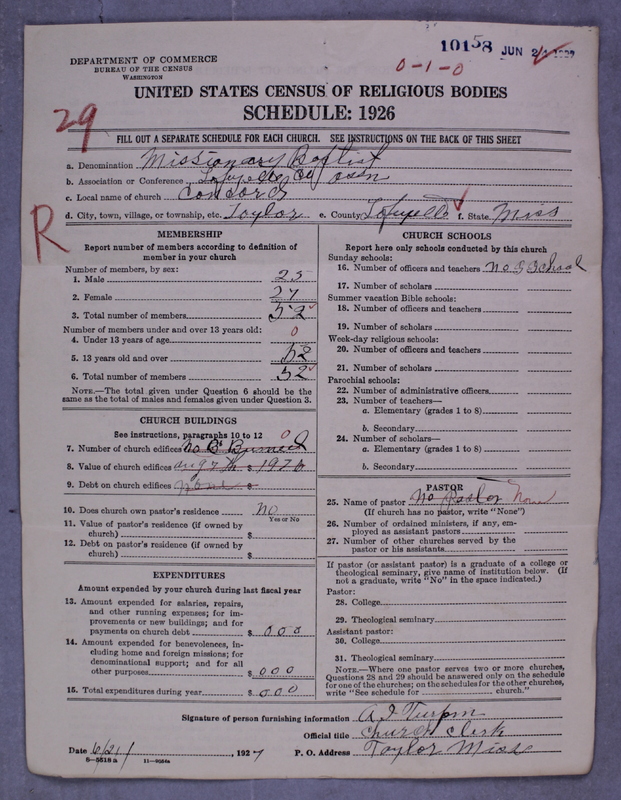 10158 JUN 21 1927
DEPARTMENT OF COMMERCE
BUREAU OF THE CENSUS
WASHINGTON
0-1-0
UNITED STATES CENSUS OF RELIGIOUS BODIES
SCHEDULE: 1926
29
FILL OUT A SEPARATE SCHEDULE FOR EACH CHURCH. SEE INSTRUCTIONS ON THE BACK OF THIS SHEET
a. Denomination Missionary Baptist
b. Association or Conference Lafayette Co Assn
c. Local name of church Concord
d. City, town, village, or township, etc. Taylor e. County Lafayette f. State Miss
R
MEMBERSHIP
Report number of members according to definition of member in your church
Number of members, by sex:
1. Male 25
2. Female 27
3. Total number of members 52
Number of members under and over 13 years old:
4. Under 13 years of age 0
5. 13 years old and over 52
6. Total number of members 52
NOTE.—The total given under Question 6 should be the same as the total of males and females given under Question 3.
CHURCH BUILDINGS
See instructions, paragraphs 10 to 12
7. Number of church edifices No Burned 0
8. Value of church edifices $ 1926
9. Debt on church edifices none $
10. Does church own pastor's residence? No
Yes or No
11. Value of pastor's residence (if owned by church) $
12. Debt on pastor's residence (if owned by church) $
EXPENDITURES
Amount expended by your church during last fiscal year
13. Amount expended for salaries, repairs, and other running expenses; for improvements or new buildings; and for payments on church debt $ 000
14. Amount expended for benevolences, including home and foreign missions; for denominational support; and for all other purposes $ 000
15. Total expenditures during year $ 000
CHURCH SCHOOLS
Report here only schools conducted by this church
Sunday schools:
16. Number of officers and teachers no S School
17. Number of scholars
Summer vacation Bible schools:
18. Number of officers and teachers
19. Number of scholars
Week-day religious schools:
20. Number of officers and teachers
21. Number of scholars
Parochial schools:
22. Number of administrative officers
23. Number of teachers—
a. Elementary (grades 1 to 8)
b. Secondary
24. Number of scholars—
a. Elementary (grades 1 to 8)
b. Secondary
PASTOR
25. Name of pastor No Pastor None
(If church has no pastor, write "None")
26. Number of ordained ministers, if any, employed as assistant pastors
27. Number of other churches served by the pastor or his assistants
If pastor (or assistant pastor) is a graduate of a college or theological seminary, give name of institution below. (If not a graduate, write "No" in the space indicated.)
Pastor:
28. College
29. Theological seminary
Assistant pastor:
30. College
31. Theological seminary
NOTE.—Where one pastor serves two or more churches, Questions 28 and 29 should be answered only on the schedule for one of the churches; on the schedules for the other churches, write "See schedule for church."
Signature of person furnishing information
Official title Church Clerk
Date 6/21/, 1927 P. O. Address Taylor Miss
8-5518 a